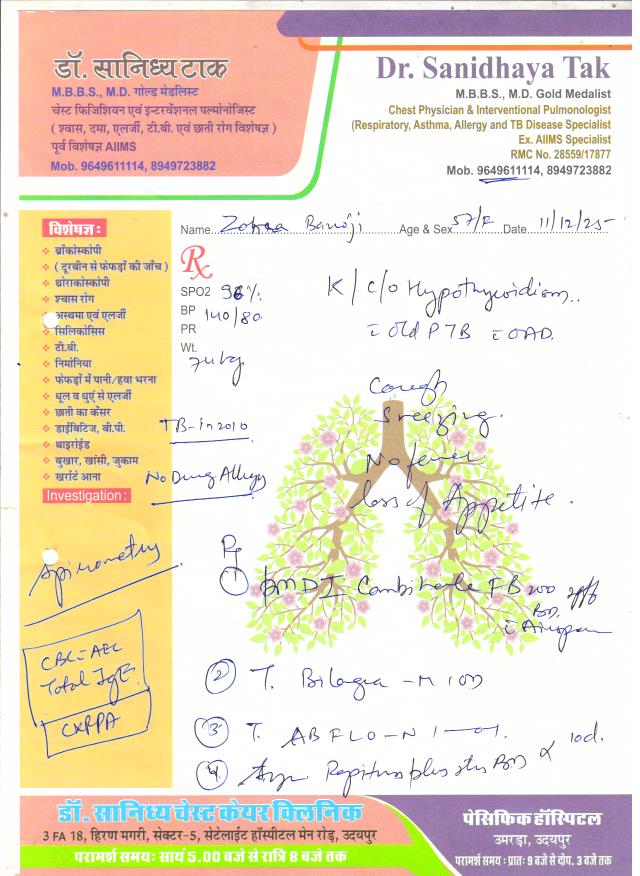 डॉ. सानिध्य टाक
M.B.B.S., M.D. गोल्ड मेडलिस्ट
चेस्ट फिजिशियन एवं इन्टरवेंशनल पल्मोनोजिस्ट
( श्वास, दमा, एलर्जी, टी.बी. एवं छाती रोग विशेषज्ञ )
पूर्व विशेषज्ञ AIIMS
Mob. 9649611114, 8949723882
Dr. Sanidhaya Tak
M.B.B.S., M.D. Gold Medalist
Chest Physician & Interventional Pulmonologist
(Respiratory, Asthma, Allergy and TB Disease Specialist
Ex. AIIMS Specialist
RMC No. 28559/17877
Mob. 9649611114, 8949723882
Name Zohra Age & Sex 57/F Date 11/12/25
Rx
SPO2 96%
BP 140/80
PR
Wt. 74kg
विशेषज्ञ :
ब्रोंकोस्कोपी
( दूरबीन से फेफड़ों की जाँच )
थोराकोस्कोपी
श्वास रोग
अस्थमा एवं एलर्जी
सिलिकोसिस
टी.बी.
निमोनिया
फेफड़ों में पानी/हवा भरना
धूल व धुएं से एलर्जी
छाती का कैंसर
डाईबिटिज, बी.पी.
थाइरोईड
बुखार, खांसी, जुकाम
खर्राटे आना
Investigation :
TB-in 2010
No Drug Allergy
Spirometry
CBC = AEC
Total IgE
CXRPA
K/C/O Hypothyroidism..
c Old PTB c OAD.
Cough
Sneezing.
No fever
loss of Appetite.
Rx
① PMDI Combihale FB 200 2puff
BD.
② T. Bilagra - M 1OD
③ T. ABFLO-N 1—01.
④ Syr 2tsp BD x 10d.
डॉ. सानिध्य चेस्ट केयर क्लिनिक
3 FA 18, हिरण मगरी, सेक्टर-5, सेटेलाईट हॉस्पीटल मेन रोड़, उदयपुर
परामर्श समय: सायं 5.00 बजे से रात्रि 8 बजे तक
पेसिफिक हॉस्पिटल
उमरड़ा, उदयपुर
परामर्श समय : प्रातः 9 बजे से दोप. 3 बजे तक